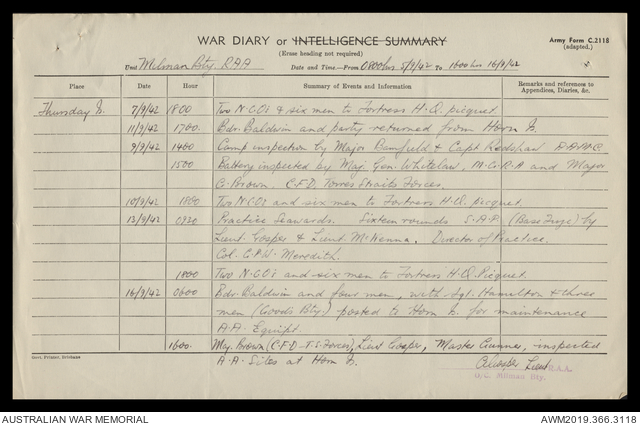 WAR DIARY or INTELLIGENCE SUMMARY
Army Form C.2118
(adapted.)
(Erase heading not required)
Unit Milman Bty. R.A.A Date and Time—From 0800 hrs. 5/9/42 To 1600 hrs. 16/9/42
Place Date Hour Summary of Events and Information Remarks and references to Appendices, Diaries, &c.
Thursday Is. 7/9/42 1800 Two N.C.O's & six men to Fortress H.Q. picquet.
11/9/42 1700. Bdr. Baldwin and party returned from Horn Is.
9/9/42 1400 Camp inspection by Major Bamfield & Capt. D.A.V.C.
1500 Battery inspected by Maj. Gen. Whitelaw, M.G.R.A and Major
G. Brown. C.F.D. Torres Straits Forces.
10/9/42 1800 Two N.C.O's and six men to Fortress H.Q. picquet.
13/9/42 0930 Practice Seawards. Sixteen rounds S.A.P. (Base Fuze) by
Lieut. Cosper & Lieut. McKenna. Director of Practice.
Col. C.P.W. Meredith.
1800 Two N.C.O's and six men to Fortress H.Q. Picquet.
16/9/42 0600 Bdr. Baldwin and four men, with Sgt. Hamilton & three
men (Goods Bty.) posted to Horn Is. for maintenance
A.A. Equipt.
1600. Maj. Brown (C.F.D. T.S. Forces), Lieut. Cosper, Master Gunner, inspected
A.A. Sites at Horn Is.
Lieut R.A.A.
O.C. Milman Bty.
Govt. Printer, Brisbane
AUSTRALIAN WAR MEMORIAL
AWM2019.366.3118